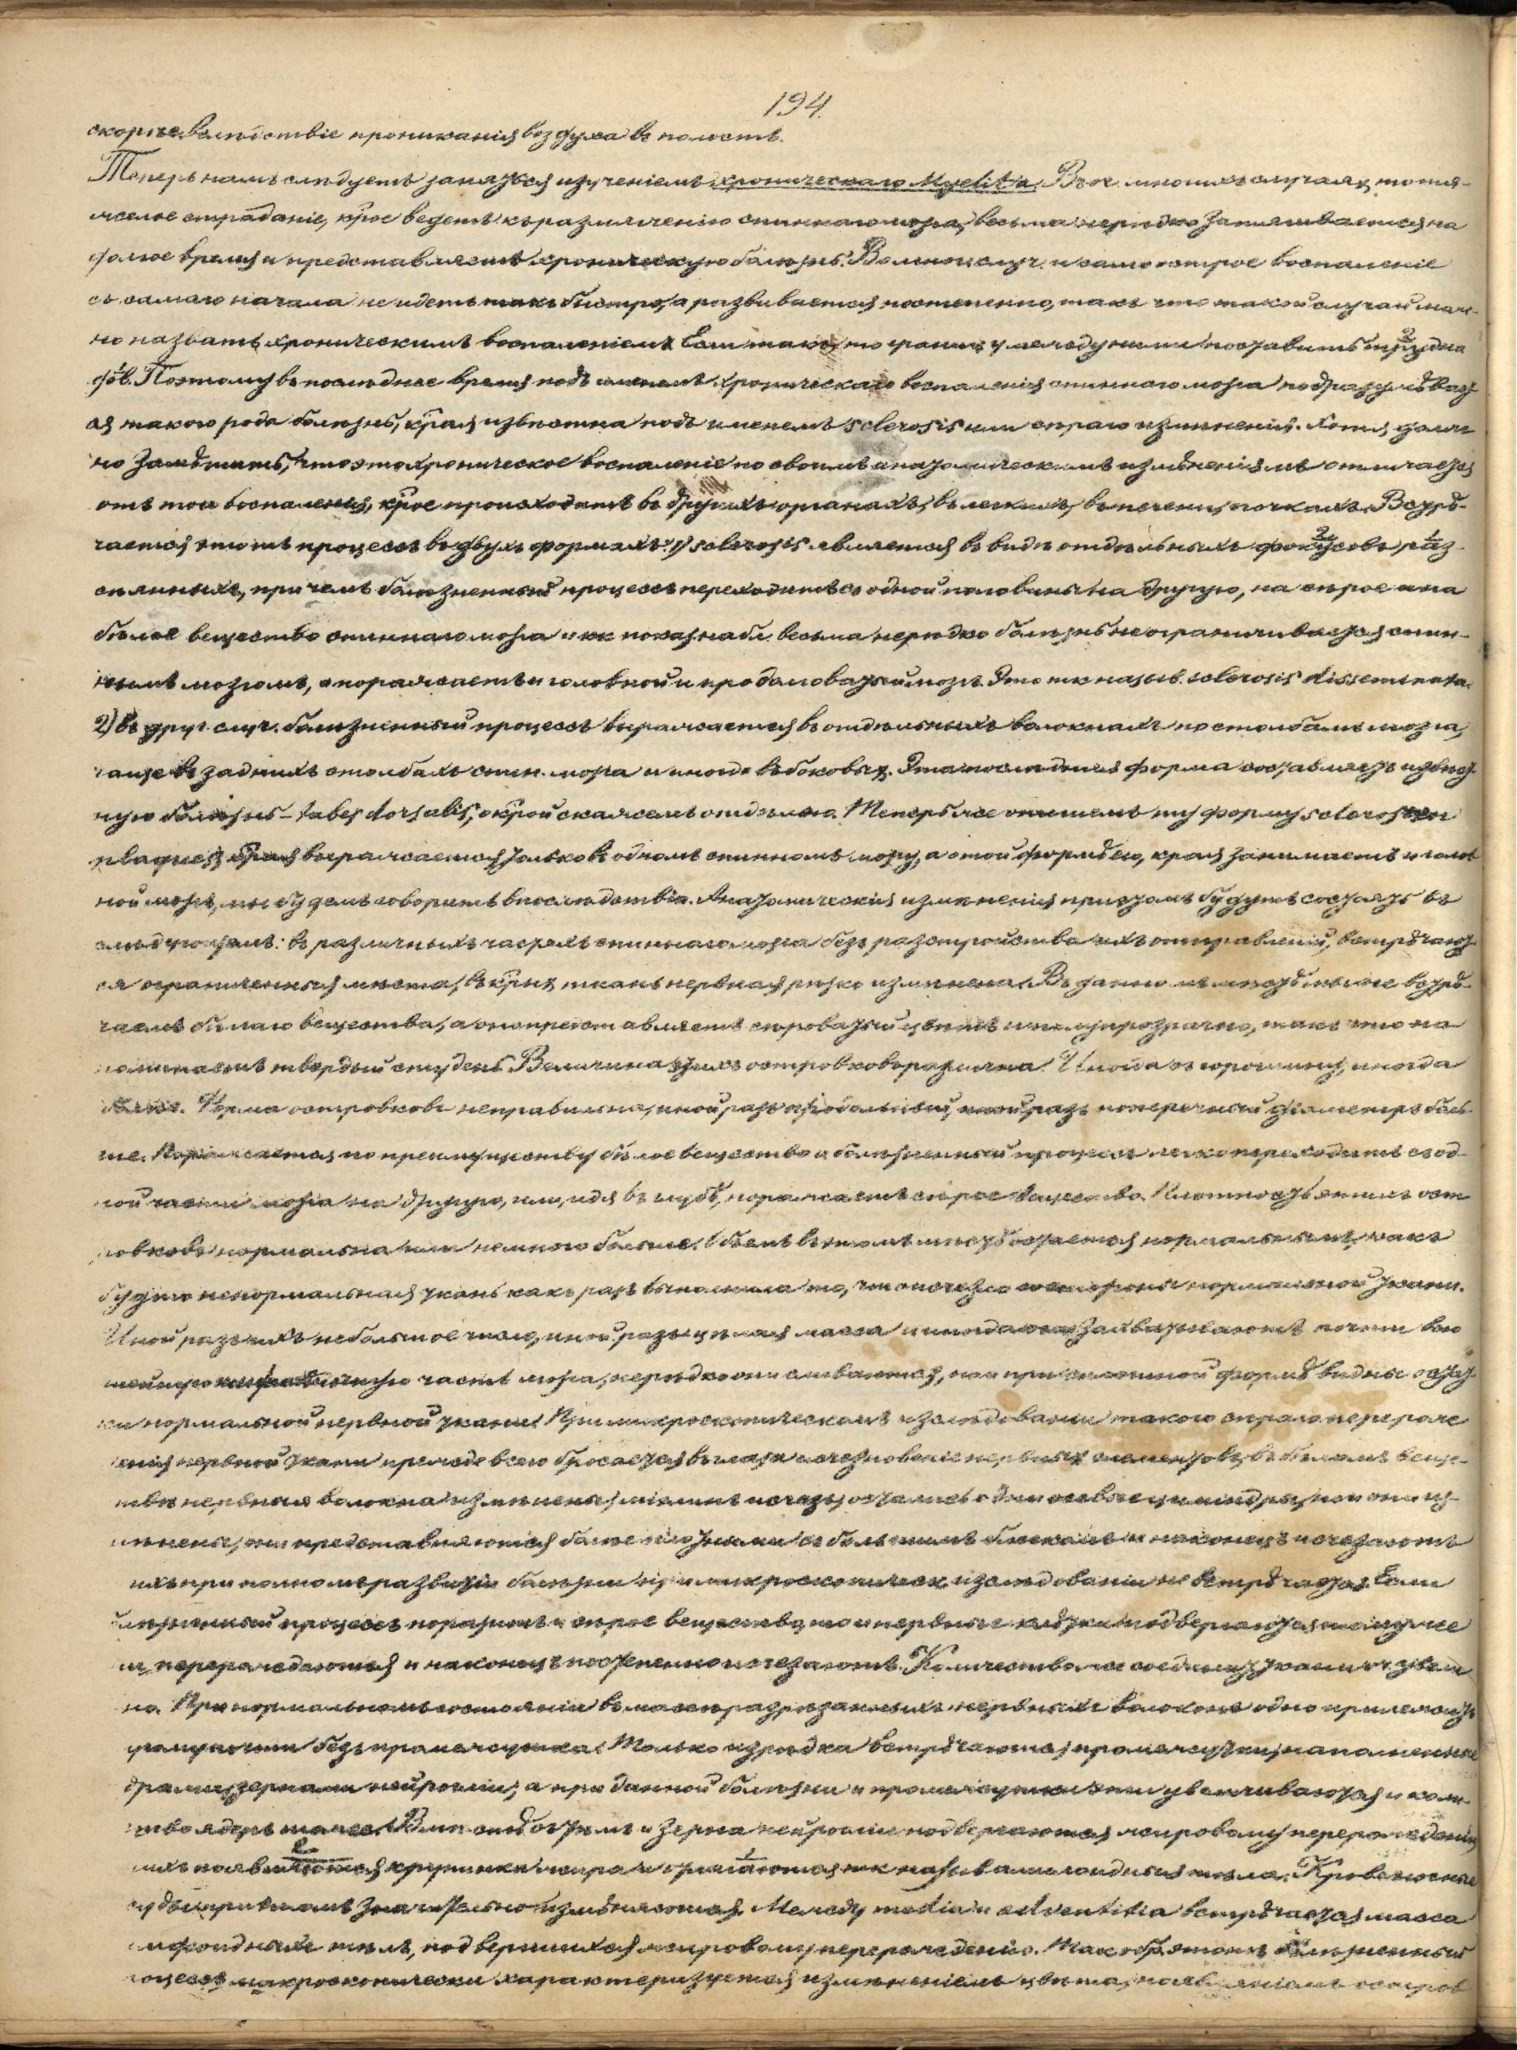 194.
скорѣе вслѣдствіе проникания воздуха въ полость.
Теперь намъ слѣдуетъ заняться изученіемъ хроническаго Myelit'a. Въ оч. многихъ случаяхъ то тя-
желое страданіе, крое ведетъ къ размягченію спиннаго мозга, весьма нерѣдко затягивается на
долгое время и представляетъ хроническую болѣзнь. Во многихъ случ. и само острое воспаленіе
съ самаго начала не идетъ такъ быстро, а развивается постепенно, такъ что такой случай мож-
но назвать хроническимъ воспаленіемъ. Если такъ, то границу между ними поставить трудно
Поэтому въ послѣднее время подъ именемъ хроническаго воспаленія спинного мозга подразумѣвает
ся такого рода болѣзнь, края извѣстна подъ именемъ sclerosis или сѣраго измѣненія. Хотя долж
но замѣтить, что это хроническое воспаленіе по своимъ анатомическимъ измѣненіямъ отличается
отъ того воспаленія, крое происходитъ въ другихъ органахъ, въ легкихъ, въ печени, почкахъ. Встрѣ-
чается этотъ процессъ въ двухъ формахъ: 1) sclerosis является въ видѣ отдѣльныхъ фокусовъ раз-
сѣянныхъ, при чемъ болѣзненный процессъ переходитъ съ одной половины на другую, на сѣрое и на
бѣлое вещество спиннаго мозга и кк показ. набл. весьма нерѣдко болѣзнь не ограничивается спин-
нымъ мозгомъ, а поражаетъ и головной и продолговатый мозгъ. Это тк назыв. sclerosis disseminata.
2) въ друг. случ. болѣзненный процессъ выражается въ отдѣльныхъ волокнахъ по столбамъ мозга,
чаще въ заднихъ столбахъ спин. мозга и иногда въ боковых. Эта послѣдняя форма составляетъ извѣст
ную болѣзнь - tabes dorsalis, о крой скажемъ отдѣльно. Теперь же опишемъ ту форму sclerosis en
plaques, края выражается только въ одномъ спинномъ мозгу, а о той формѣ ея, края занимаетъ и голов
ной мозгъ, мы будемъ говорить впослѣдствіи. Анатомическія измѣненія при этомъ будутъ состоять въ
слѣдующемъ: въ различныхъ частяхъ спиннаго мозга безъ разстройства ихъ отправленій, встрѣчают
ся ограниченныя мѣста, въ крых ткань нервная рѣзко измѣнена. Въ данномъ мѣстѣ мы не встрѣ-
чаемъ бѣлаго вещества, а оно представляетъ сѣроватый цвѣтъ и полупрозрачно, такъ что на
поминаетъ твердый студень. Величина этихъ островковъ различна. Иногда съ горошину, иногда
болѣе. Форма островковъ неправильна, иной разъ продольный, иной разъ поперечный діаметръ боль-
ше. Поражается по преимуществу бѣлое вещество и болѣзненный процессъ легко переходитъ съ од-
ной части мозга на другую, или, идя въ глубь, поражаетъ сѣрое вещество. Плотность этихъ ост
ровковъ нормальна или немного больше. Объемъ въ этомъ мѣстѣ остается нормальнымъ, какъ
будто ненормальная ткань какъ разъ выполнила то, что исчезло со стороны нормальной ткани.
Иной разъ ихъ небольшое число, иной разъ цѣлая масса и иногда они захватываютъ почти всю
шейную часть мозга, нерѣдко они сливаются, но и при сплошной формѣ видны остат
ки нормальной нервной ткани. При микроскопическомъ изслѣдованіи такого сѣраго перерож
денія нервной ткани прежде всего бросается въ глаза исчезновеніе нервныхъ элементовъ, въ бѣломъ веще-
ствѣ нервныя волокна измѣнены, міэлинъ исчезъ, остались одни осевые цилиндры, но и они из-
мѣнены, они представляются болѣе плотными съ большимъ блескомъ и наконецъ исчезаютъ
ихъ при полномъ развитіи болѣзни при микроскопическ. изслѣдованіи не встрѣчается. Если
болѣзненный процессъ поразитъ и сѣрое вещество, то и нервныя клѣтки подвергаются той же
перерождаются и наконецъ постепенно исчезаютъ. Количество же соедин. ткани оч. увели
но. При нормальномъ состояніи въ массѣ разрѣзанныхъ нервныхъ волоконъ одно прилежитъ
другому почти безъ промежутка. Только изрѣдка встрѣчаются промежутки, наполненные
ядрами, зернами нейрогліи, а при данной болѣзни и промежутки эти увеличиваются и коли-
ство ядеръ также. Вмѣстѣ съ этимъ и зерна нейрогліи подвергаются жировому перерожденію
нихъ появляются крупинки жира и являются тк назыв. амилоидныя тѣла. Кровеносные
суды при этомъ значительно измѣняются. Между media и adventitia встрѣчается масса
лимфоидныхъ тѣлъ, подвергшихся жировому перерожденію. Так. обр. этотъ болѣзненный
процессъ макроскопически характеризуется измѣненіемъ цвѣта, появленіемъ остров